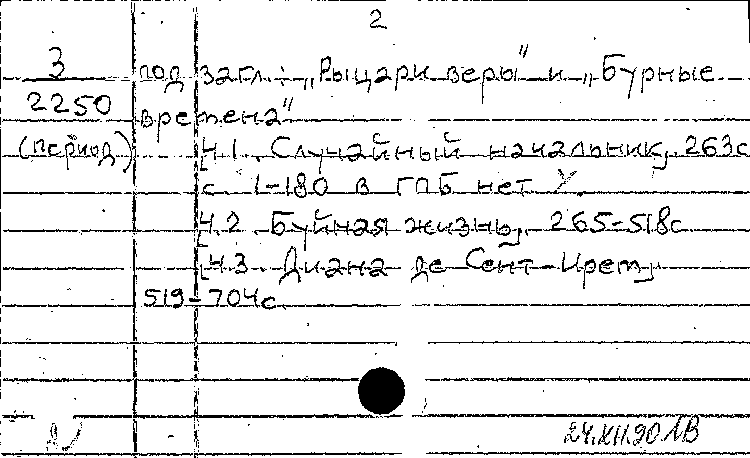 2
3
2250
(период)
под загл.: „Рыцари веры" и „Бурные
времена"
Ч.1. Случайный начальник, 263с
с. 1-180 в ГПБ нет
Ч.2. Буйная жизнь, 265-518с
Ч.3. Диана де Сент-Ирем,
519-704с.
24.XII.90